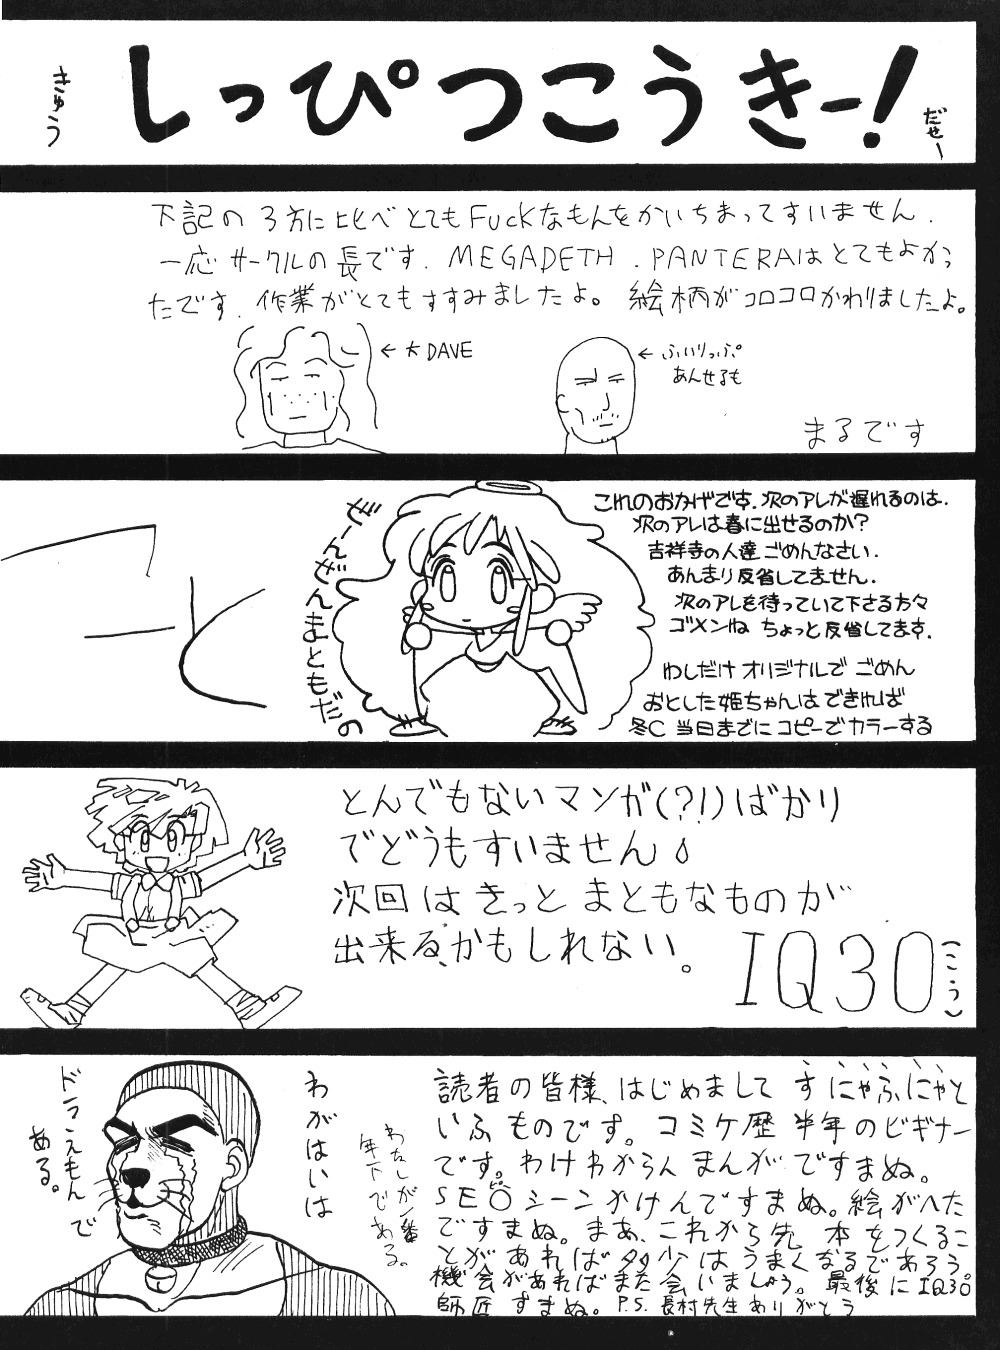 きゅう
しっぴつこうきー!
だぜー
下記の3方に比べとてもFuckなもんをかいちまってすいません.
一応サークルの長です. MEGADETH. PANTERAはとてもよかっ
たです. 作業がとてもすすみましたよ。 絵柄がコロコロかわりましたよ。
← 大DAVE
← ふぃりっぷ
あんせるも
まるです
ぜーんぜんまともだの
これのおかげです. 次のアレが遅れるのは.
次のアレは春に出せるのか?
吉祥寺の人達ごめんなさい.
あんまり反省してません.
次のアレを待っていて下さる方々
ゴメンね ちょっと反省してます.
わしだけオリジナルでごめん
おとした姫ちゃんはできれば
冬C 当日までにコピーでカラーする
とんでもないマンガ(?!)ばかり
でどうもすいません
次回はきっとまともなものが
出来る、かもしれない。
IQ30
(こう)
わがはいは
ドラえもんで
ある。
わたしが一番
年下である。
読者の皆様、はじめまして すにゃふにゃと
いふものです。コミケ歴半年のビギナー
です。わけわからんまんがですまぬ。
SE○シーンかけんですまぬ。絵がへた
ですまぬ。まあ、これから先 本をつくるこ
とがあれば多少はうまくなるであろう。
機会があればまた会いましょう。最後にIQ30
師匠すまぬ。P.S. 長村先生ありがとう